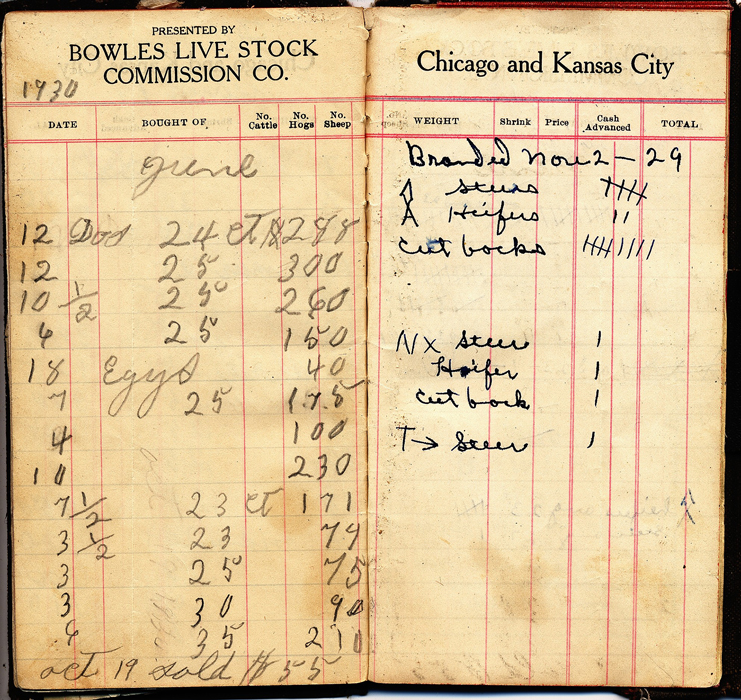 PRESENTED BY
BOWLES LIVE STOCK
COMMISSION CO.
1930
DATE BOUGHT OF No. Cattle No. Hogs No. Sheep
June
12 Dos 24 ct $288
12 25 300
10 1/2 25 260
25 150
18 Egys 40
7 25 1.75
4 100
10 230
7 1/2 23 ct 171
3 1/2 23 79
3 25 75
3 30 90
35
oct 19 sold $55
Chicago and Kansas City
WEIGHT Shrink Price Cash Advanced TOTAL
Branded Nov 2 - 29
Steers
Heifers
Cut backs
NX Steer 1
Heifer 1
Cut back 1
T→ Steer 1